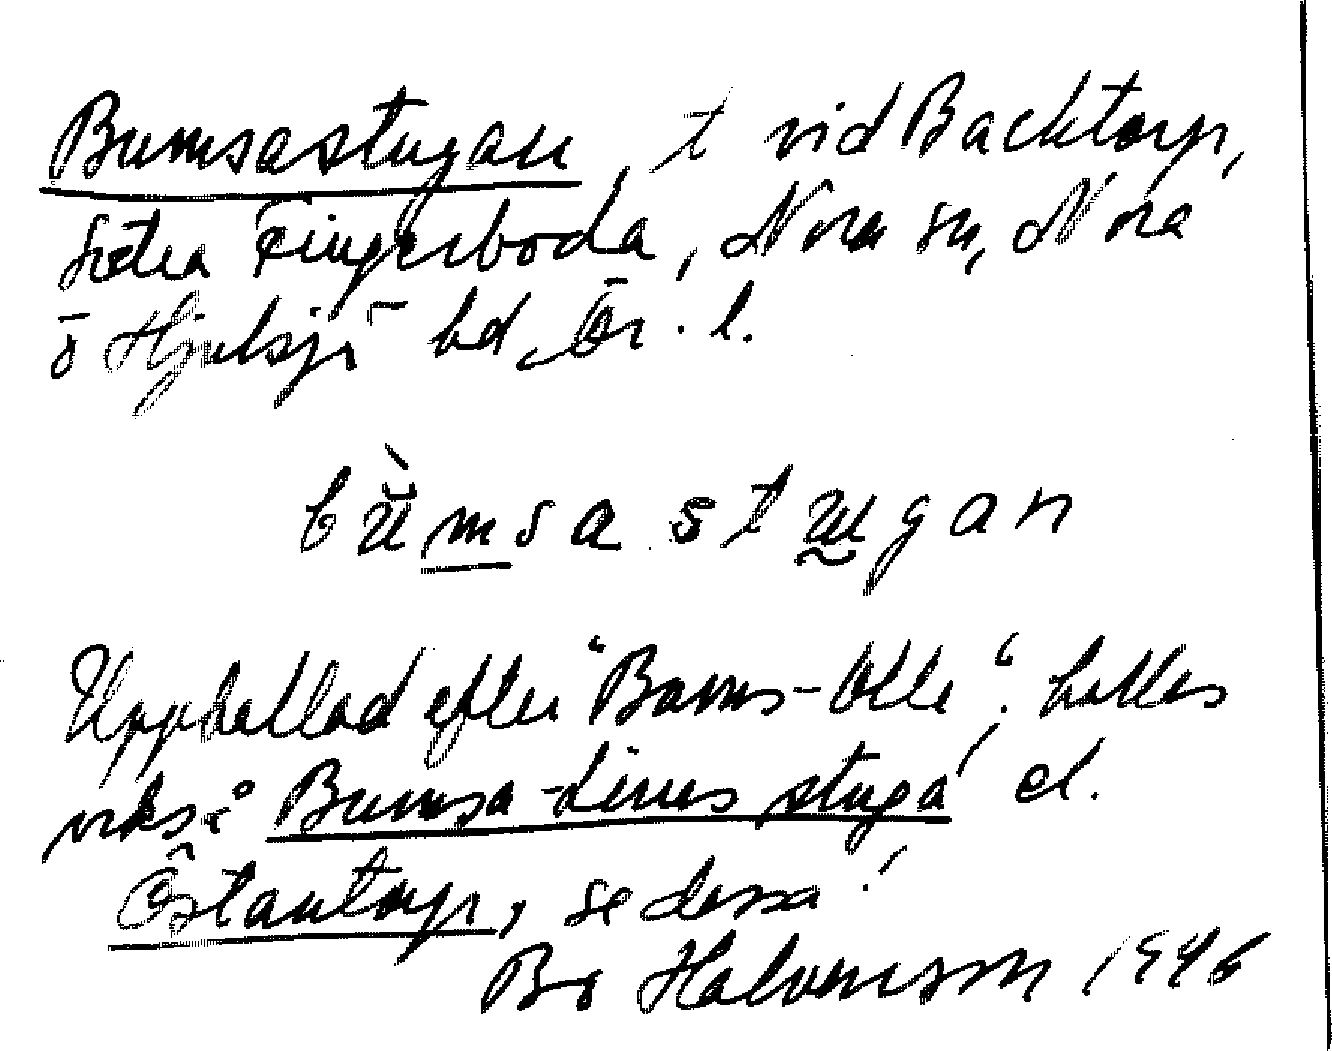 Bumsastugan, t vid Backtorp,
Södra Fingerboda, Nora sn, Nora
o Hjulsjö bd Ör. l.
bumsastugan
Uppkallad efter "Bums-Olle". kallas
också Bumsa-Linus stuga el.
Östantorp, se dessa!
Bo Halvarsson 1946